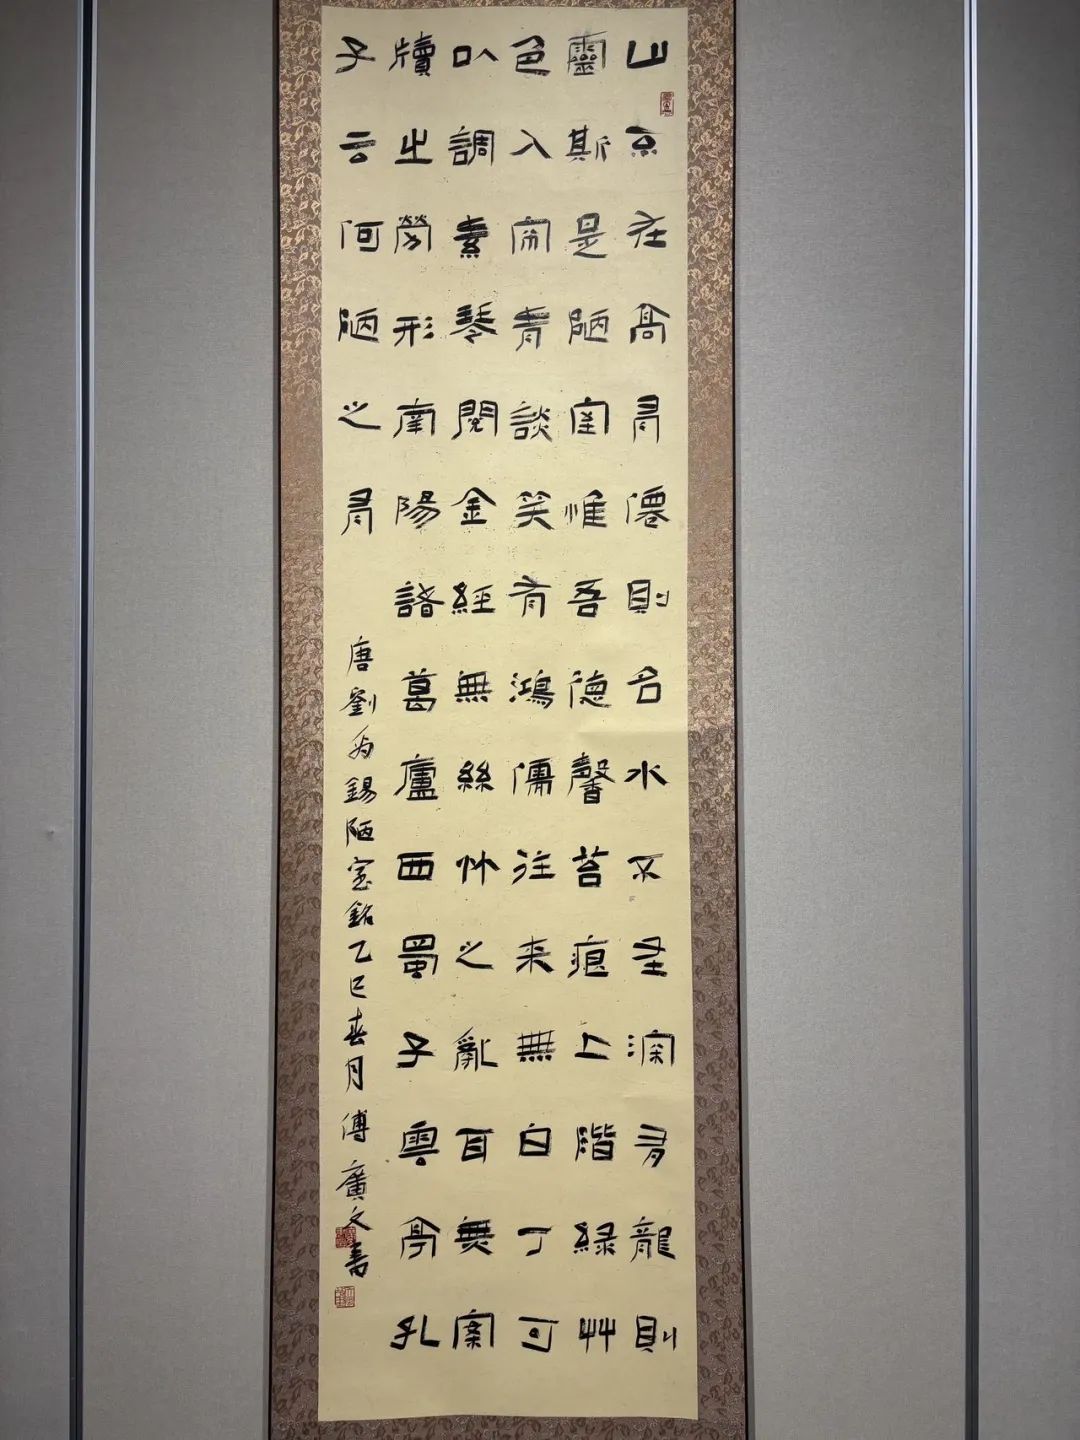 山不在高有僊則名水不在深有龍則
靈斯是陋室惟吾德馨苔痕上階緑艸
色入帘青談笑有鴻儒往来無白丁可
以調素琴閱金經無絲竹之亂耳無案
牘之勞形南陽諸葛廬西蜀子雲亭孔
子云何陋之有
唐劉禹錫陋室銘乙巳春月傅廣文書